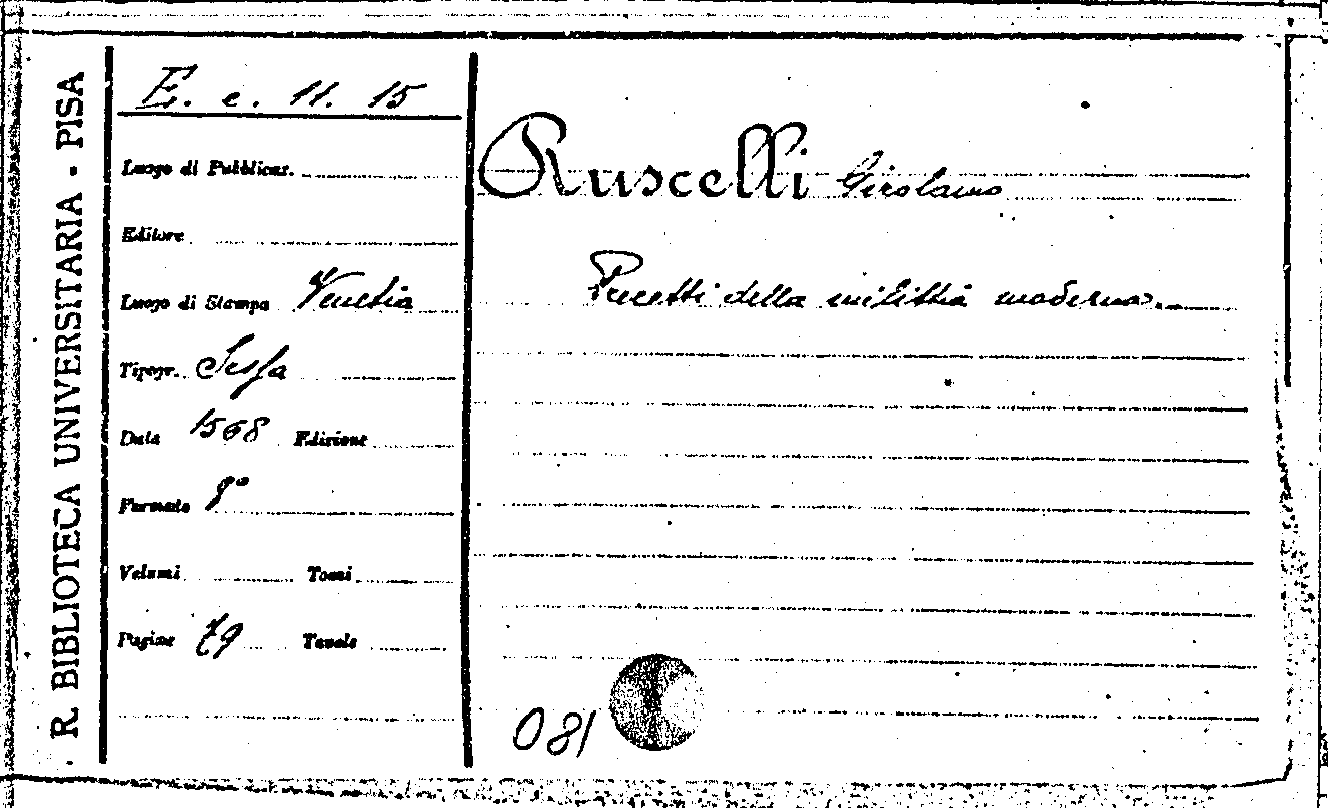 R. BIBLIOTECA UNIVERSITARIA - PISA
E. c. 11. 15
Luogo di Pubblicaz.
Editore
Luogo di Stampa Venetia
Tipogr. Sessa
Data 1568 Edizione
Formato 8°
Volumi Tomi
Pagine 79 Tavole
Ruscelli Girolamo
Precetti della militia moderna
081